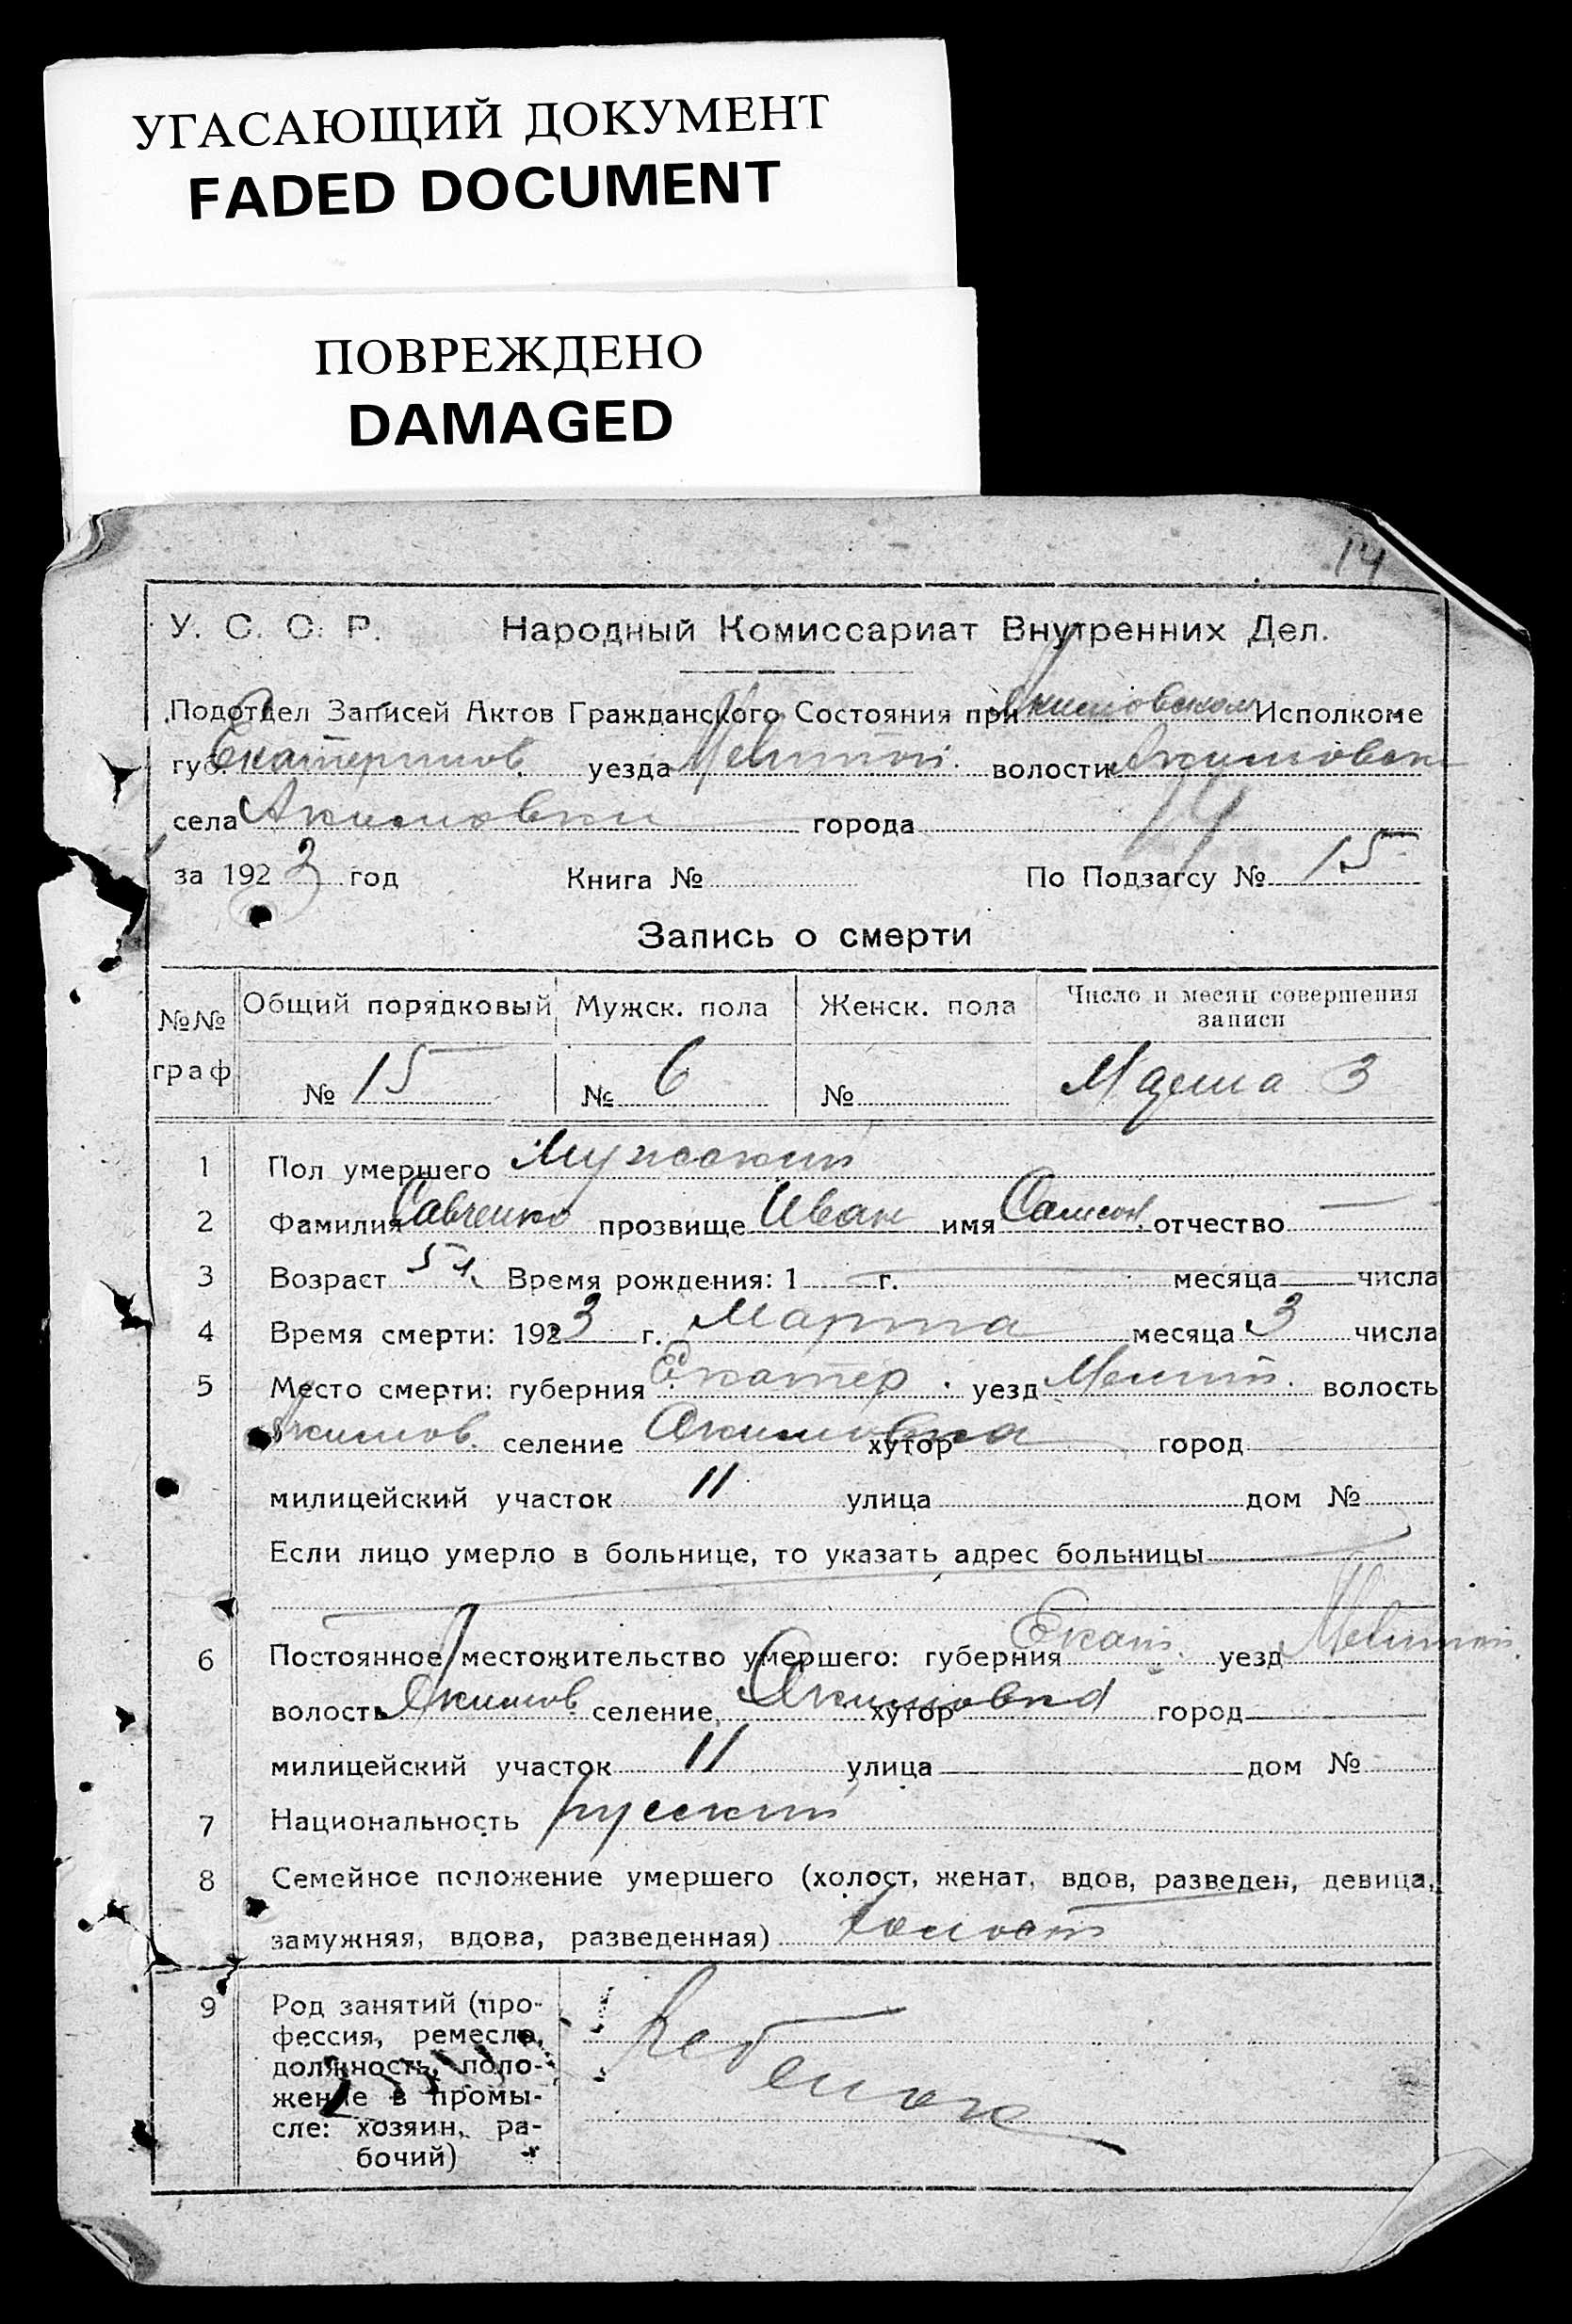 УГАСАЮЩИЙ ДОКУМЕНТ
FADED DOCUMENT
ПОВРЕЖДЕНО
DAMAGED
14
У. С. С. Р. Народный Комиссариат Внутренних Дел.
Подотдел Записей Актов Гражданского Состояния при Акимовском Исполкоме
губ. Екатеринов. уезда Мелитоп. волости Акимовск
села Акимовки города
за 1923 год Книга № По Подзагсу № 15
Запись о смерти
№№ граф Общий порядковый Мужск. пола Женск. пола Число и месяц совершения записи
№ 15 № 6 № Марта 3
1 Пол умершего Мужской
2 Фамилия Савченко прозвище Иван имя Самсон. отчество —
3 Возраст 5 л. Время рождения: 1 г. месяца числа
4 Время смерти: 1923 г. Марта месяца 3 числа
5 Место смерти: губерния Екатер. уезд Мелит. волость
Акимов. селение Акимовка хутор город
милицейский участок 11 улица дом №
Если лицо умерло в больнице, то указать адрес больницы
6 Постоянное местожительство умершего: губерния Екат. уезд Мелитоп.
волость Акимов селение Акимовка хутор город
милицейский участок 11 улица дом №
7 Национальность русский
8 Семейное положение умершего (холост, женат, вдов, разведен, девица,
замужняя, вдова, разведенная) холост
9 Род занятий (про-
фессия, ремесло,
должность, поло-
жение в промы-
сле: хозяин, ра-
бочий)
Ребенок